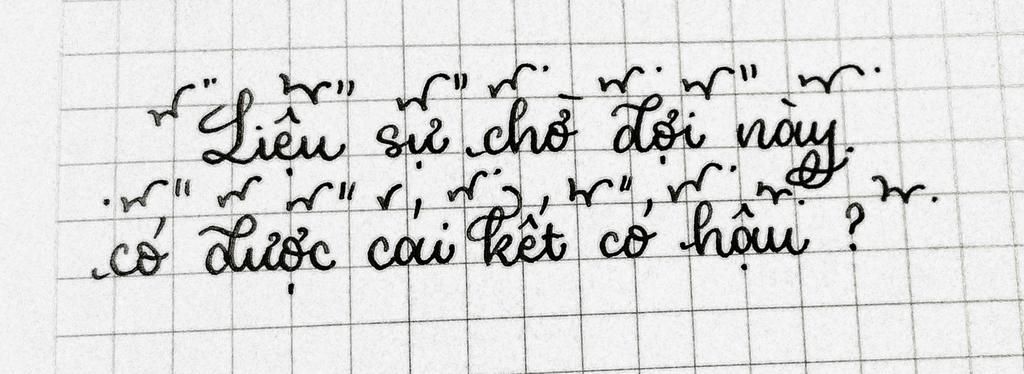 Liệu sự chờ đợi này
có được cái kết có hậu ?